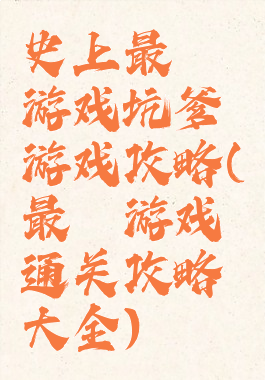 史上最
游戏坑爹
游戏攻略(
最 游戏
通关攻略
大全)